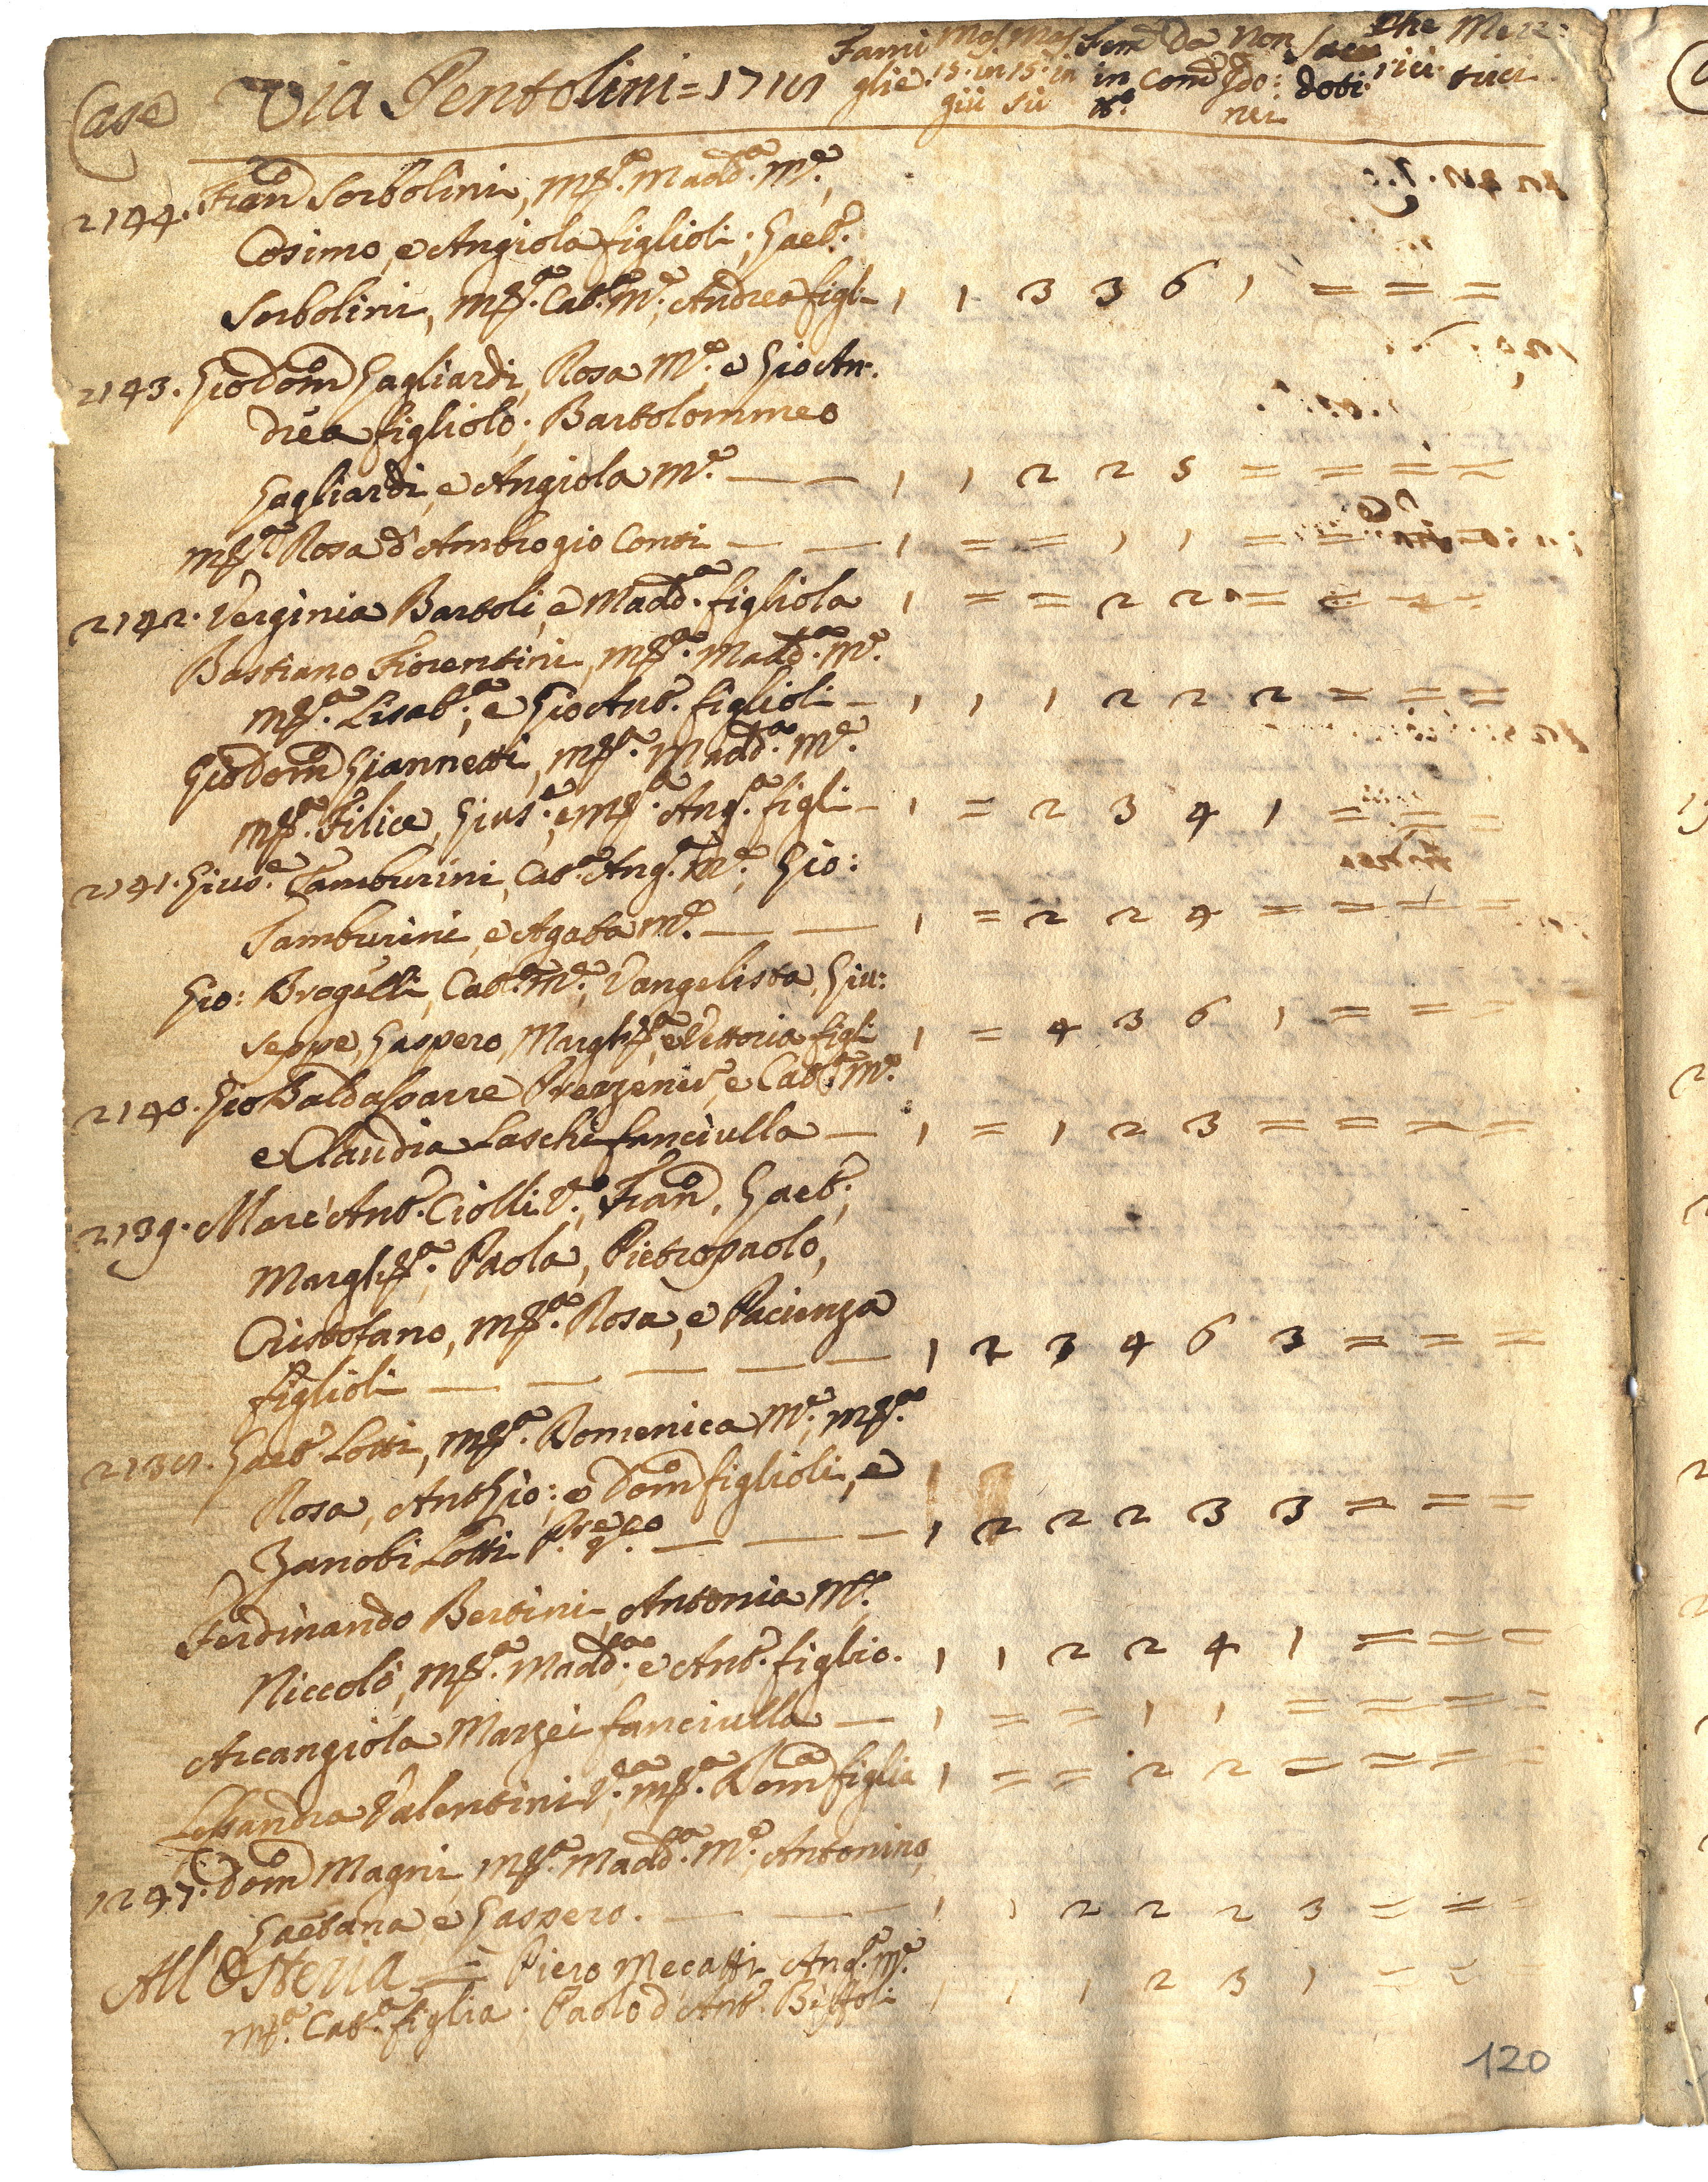 Case Via Pentolini = 1718 Fami glie. Mas. 15. in giù Mas. 15. in sù Fem. in Da Com. Non Sacer doti. Che rici. Mere trici
2144. Fran.o Sorbolini, M.a Madd.a M.e,
Cosimo, e Angiola figlioli; Gaet.o
Sorbolini, M.a Cat.a M.e, Andrea figl.- 1 1 3 3 6 1 = = =
2143. Gio Dom.o Gagliardi, Rosa M.e e Gio An-
drea figliolo; Bartolommeo
Gagliardi, e Angiola M.e — — 1 1 2 2 5 = = = =
M.a Rosa d'Ambrogio Conti — — 1 = = 1 1 = =
2142. Verginia Bartoli, e Madd.a figliola 1 = = 2 2 =
Bastiano Fiorentini, M.a Madd.a M.e
M.a Lisab.a, e Gio Ant.o figlioli - 1 1 1 2 2 2 = = =
Gio Dom.o Giannetti, M.a Madd.a M.e
M.a Filice, Gius.e, e M.a Ang.a figli - 1 = 2 3 4 1 = = =
2141. Gius.e Tamburini, Cat.a Ang.a M.e, Gio:
Tamburini, e Agata M.e — — 1 = 2 2 4 = = = =
Gio: Brogelli, Cat.a M.e, Vangelista, Giu:
seppe, Gaspero, Margh.a, e Vettoria figli 1 = 4 3 6 1 = = =
2140. Gio Baldassarre, e Cat.a M.e
e Claudia Laschi fanciulla — 1 = 1 2 3 = = = =
2139. Marc'Ant.o Ciolli V.o, Fran.o, Gaet.o,
Margh.a, Paola, Pietropaolo,
Cristofano, M.a Rosa, e Pacienza
figlioli — — — — — 1 2 3 4 6 3 = = =
2138. Gaet.o Lotti, M.a Domenica M.e, M.a
Rosa, Ant.o Gio:, e Dom.o figlioli, e
Zanobi Lotti — — — 1 2 2 2 3 3 = = =
Ferdinando Bertini, Antonia M.e
Niccolò, M.a Madd.a e Ant.o figlio. 1 1 2 2 4 1 = = =
Arcangiola Marzei fanciulla — 1 = = 1 1 = = = =
Lessandra Valentini V.a, M.a Dom.a figlia 1 = = 2 2 = = = =
1247. Dom.o Magni, M.a Madd.a M.e, Antonino,
Gaetana, e Gaspero. — — — 1 1 2 2 2 3 = = =
All'Osteria = Piero Mecatti Ang.a M.e
M.a Cat.a figlia; Paolo d'Ant.o 1 1 1 2 3 1 = = =
120